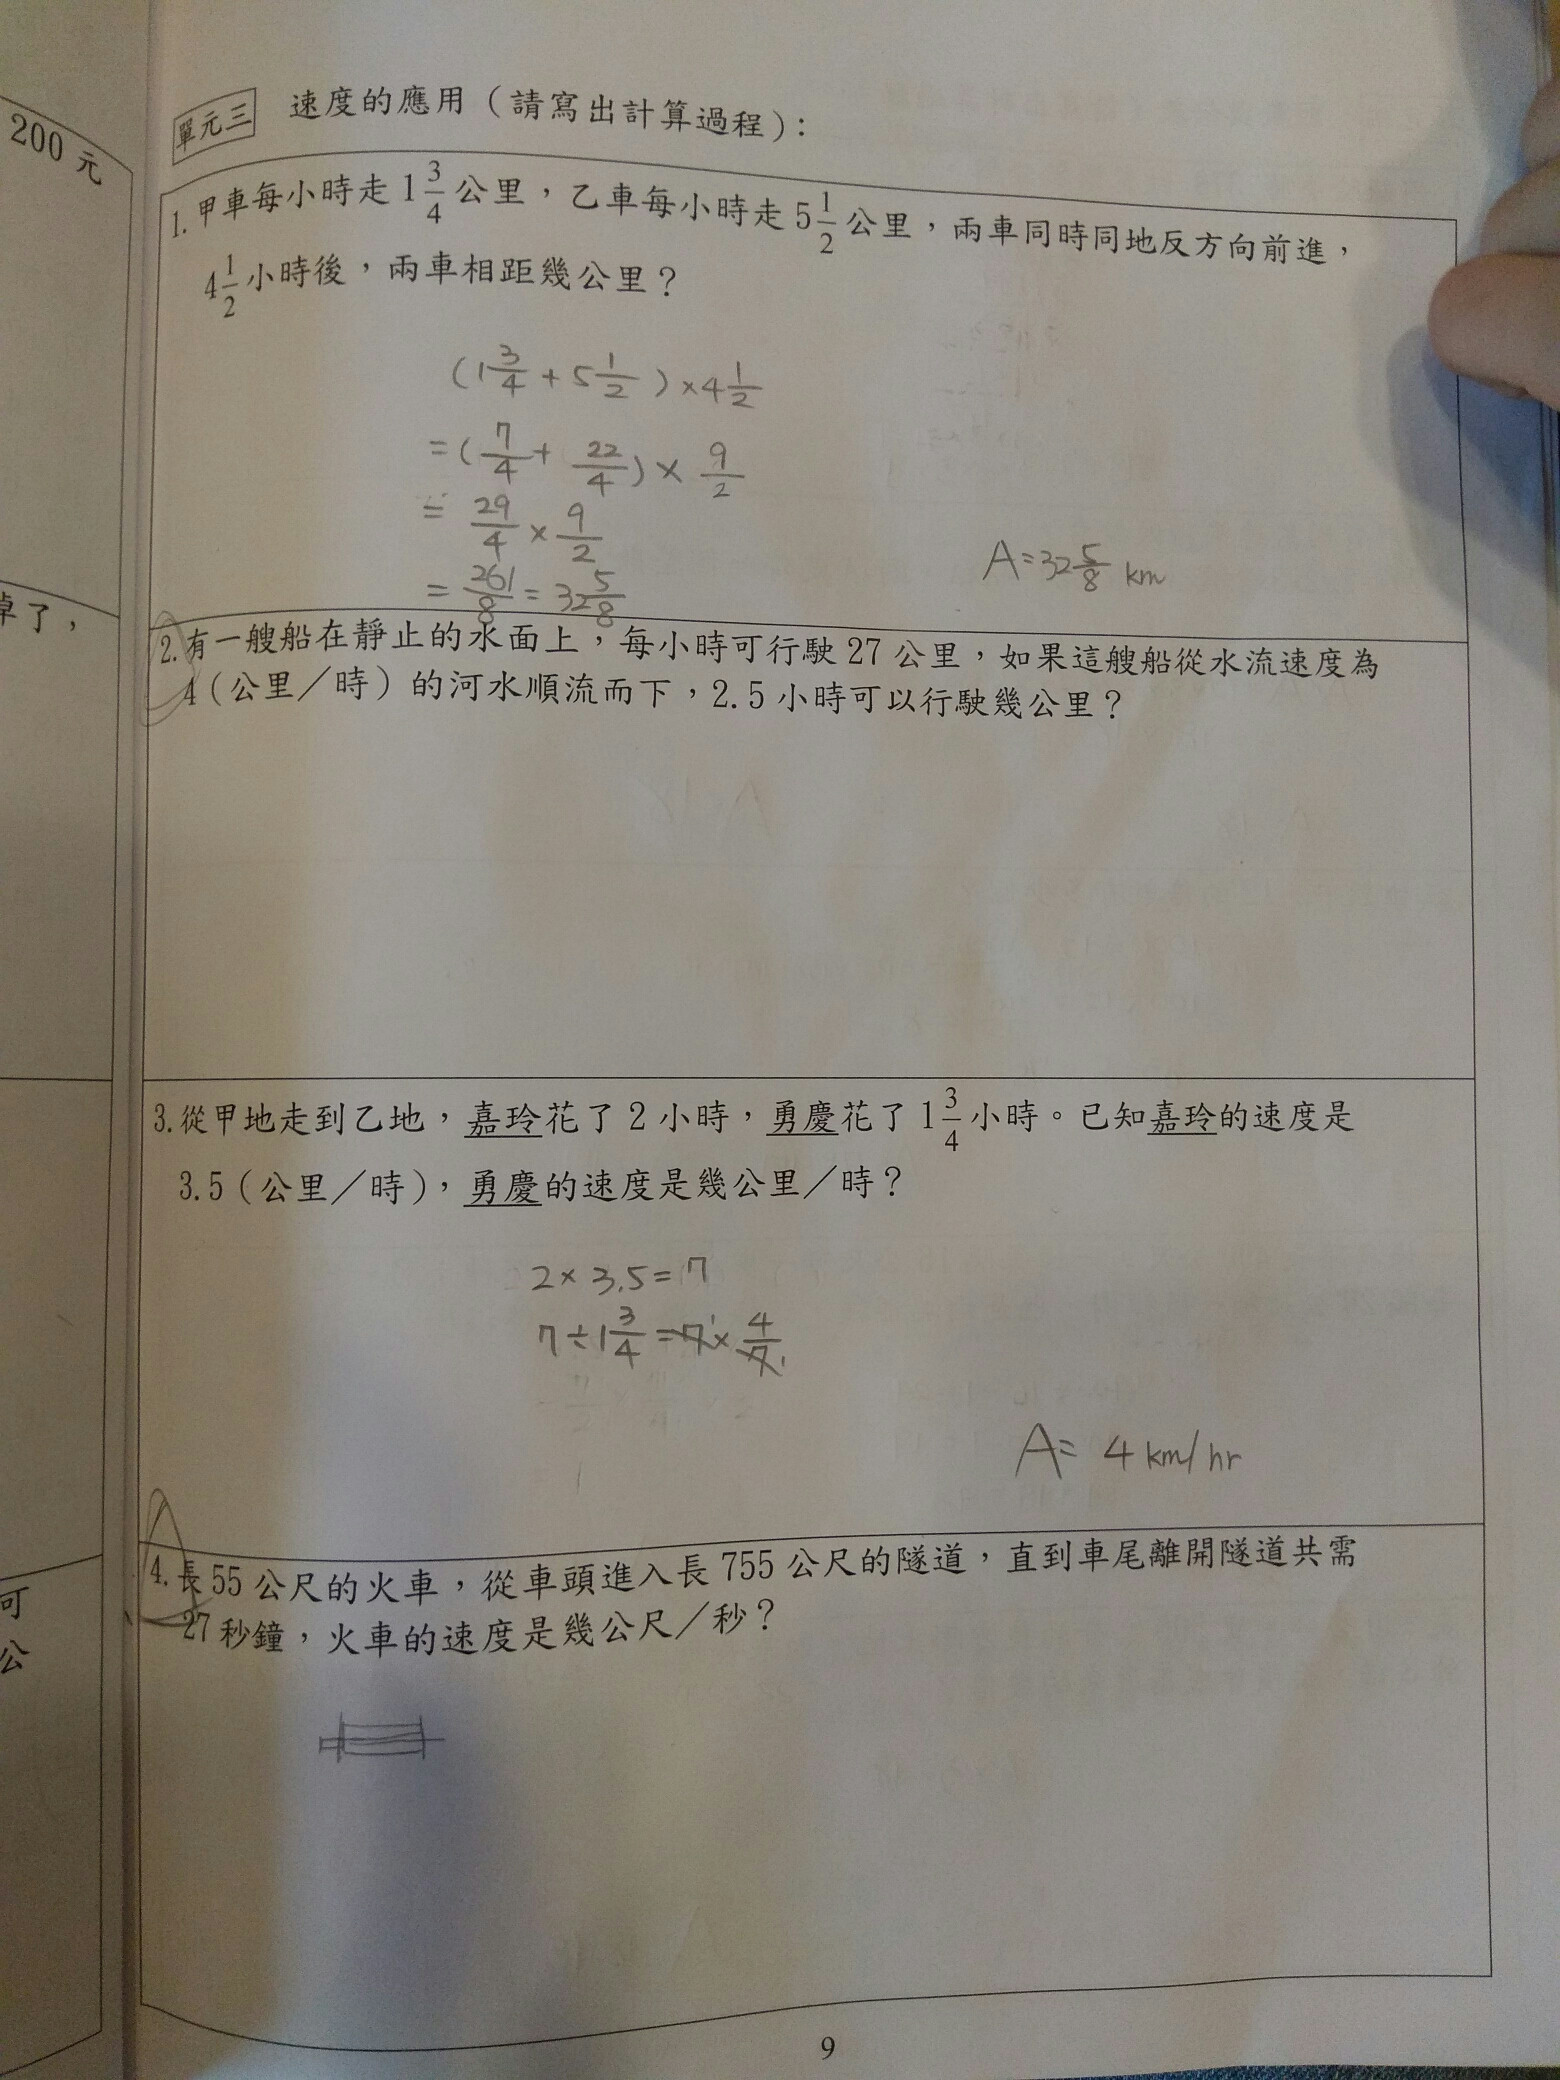 200 元
掉了，
可
公
單元三 速度的應用（請寫出計算過程）：
1. 甲車每小時走 1 3/4 公里，乙車每小時走 5 1/2 公里，兩車同時同地反方向前進，
4 1/2 小時後，兩車相距幾公里？
(1 3/4 + 5 1/2) × 4 1/2
= (7/4 + 22/4) × 9/2
= 29/4 × 9/2
= 261/8 = 32 5/8
A = 32 5/8 km
2. 有一艘船在靜止的水面上，每小時可行駛 27 公里，如果這艘船從水流速度為
4（公里／時）的河水順流而下，2.5 小時可以行駛幾公里？
3. 從甲地走到乙地，嘉玲花了 2 小時，勇慶花了 1 3/4 小時。已知嘉玲的速度是
3.5（公里／時），勇慶的速度是幾公里／時？
2 × 3.5 = 7
7 ÷ 1 3/4 = 7 1 × 4/7 1
A = 4 km/hr
4. 長 55 公尺的火車，從車頭進入長 755 公尺的隧道，直到車尾離開隧道共需
27 秒鐘，火車的速度是幾公尺／秒？
9